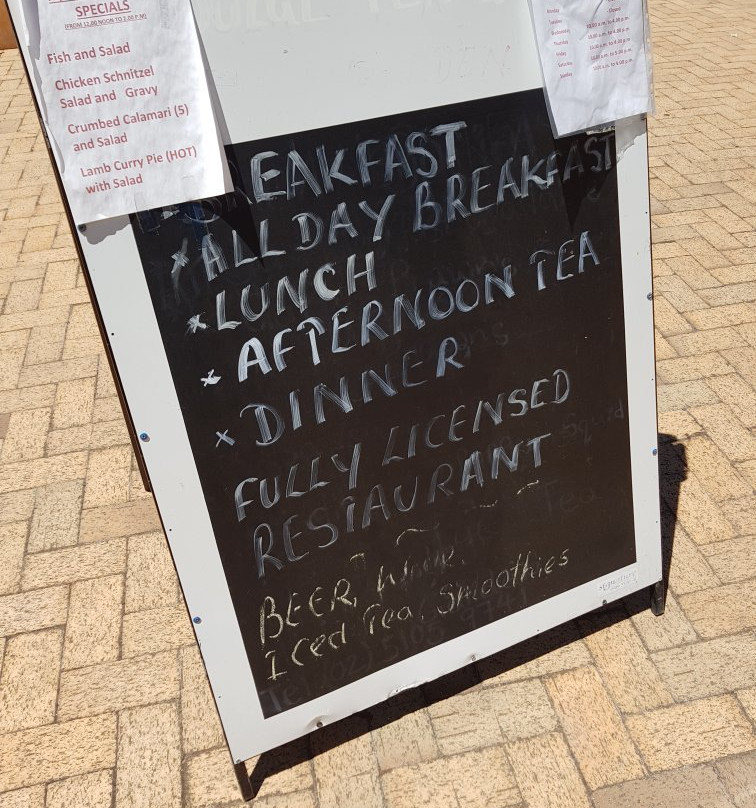 SPECIALS
(FROM 12.00 NOON TO 2.00 P.M)
Fish and Salad
Chicken Schnitzel
Salad and Gravy
Crumbed Calamari (5)
and Salad
Lamb Curry Pie (HOT)
with Salad
Monday
Tuesday
Wednesday
Thursday
Friday
Saturday
Sunday
BREAKFAST
* ALL DAY BREAKFAST
* LUNCH
* AFTERNOON TEA
* DINNER
FULLY LICENSED
RESTAURANT
BEER, Wine,
Iced Tea, Smoothies